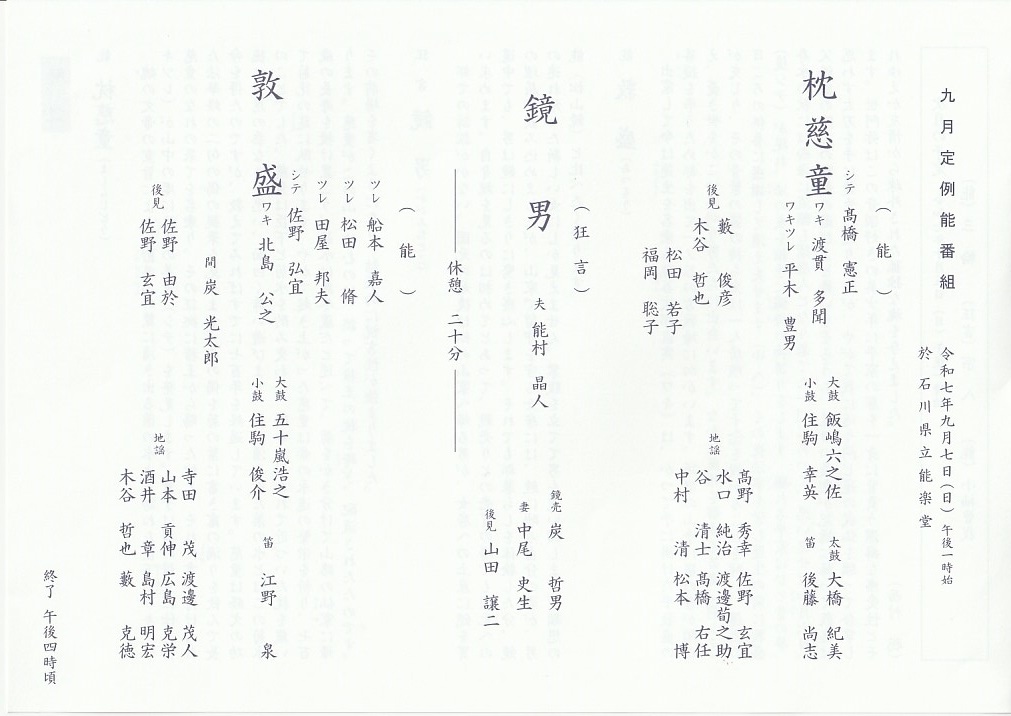 九月定例能番組
令和七年九月七日(日)午後一時始
於 石川県立能楽堂
(能)
枕慈童
シテ 髙橋 憲正
ワキ 渡貫 多聞
ワキツレ 平木 豊男
大鼓 飯嶋六之佐
小鼓 住駒 幸英
太鼓 大橋 紀美
笛 後藤 尚志
後見
藪 俊彦
木谷 哲也
松田 若子
福岡 聡子
地謡
髙野 秀幸 佐野 玄宜
水口 純治 渡邊荀之助
谷 清士 髙橋 右任
中村 清 松本 博
(狂言)
鏡男
夫 能村 晶人
鏡売 炭 哲男
妻 中尾 史生
後見 山田 譲二
休憩 二十分
(能)
敦盛
ツレ 船本 嘉人
ツレ 松田 脩
ツレ 田屋 邦夫
シテ 佐野 弘宜
ワキ 北島 公之
間 炭 光太郎
大鼓 五十嵐浩之
小鼓 住駒 俊介
笛 江野 泉
後見
佐野 由於
佐野 玄宜
地謡
寺田 茂 渡邊 茂人
山本 貢伸 広島 克栄
酒井 章 島村 明宏
木谷 哲也 藪 克徳
終了 午後四時頃